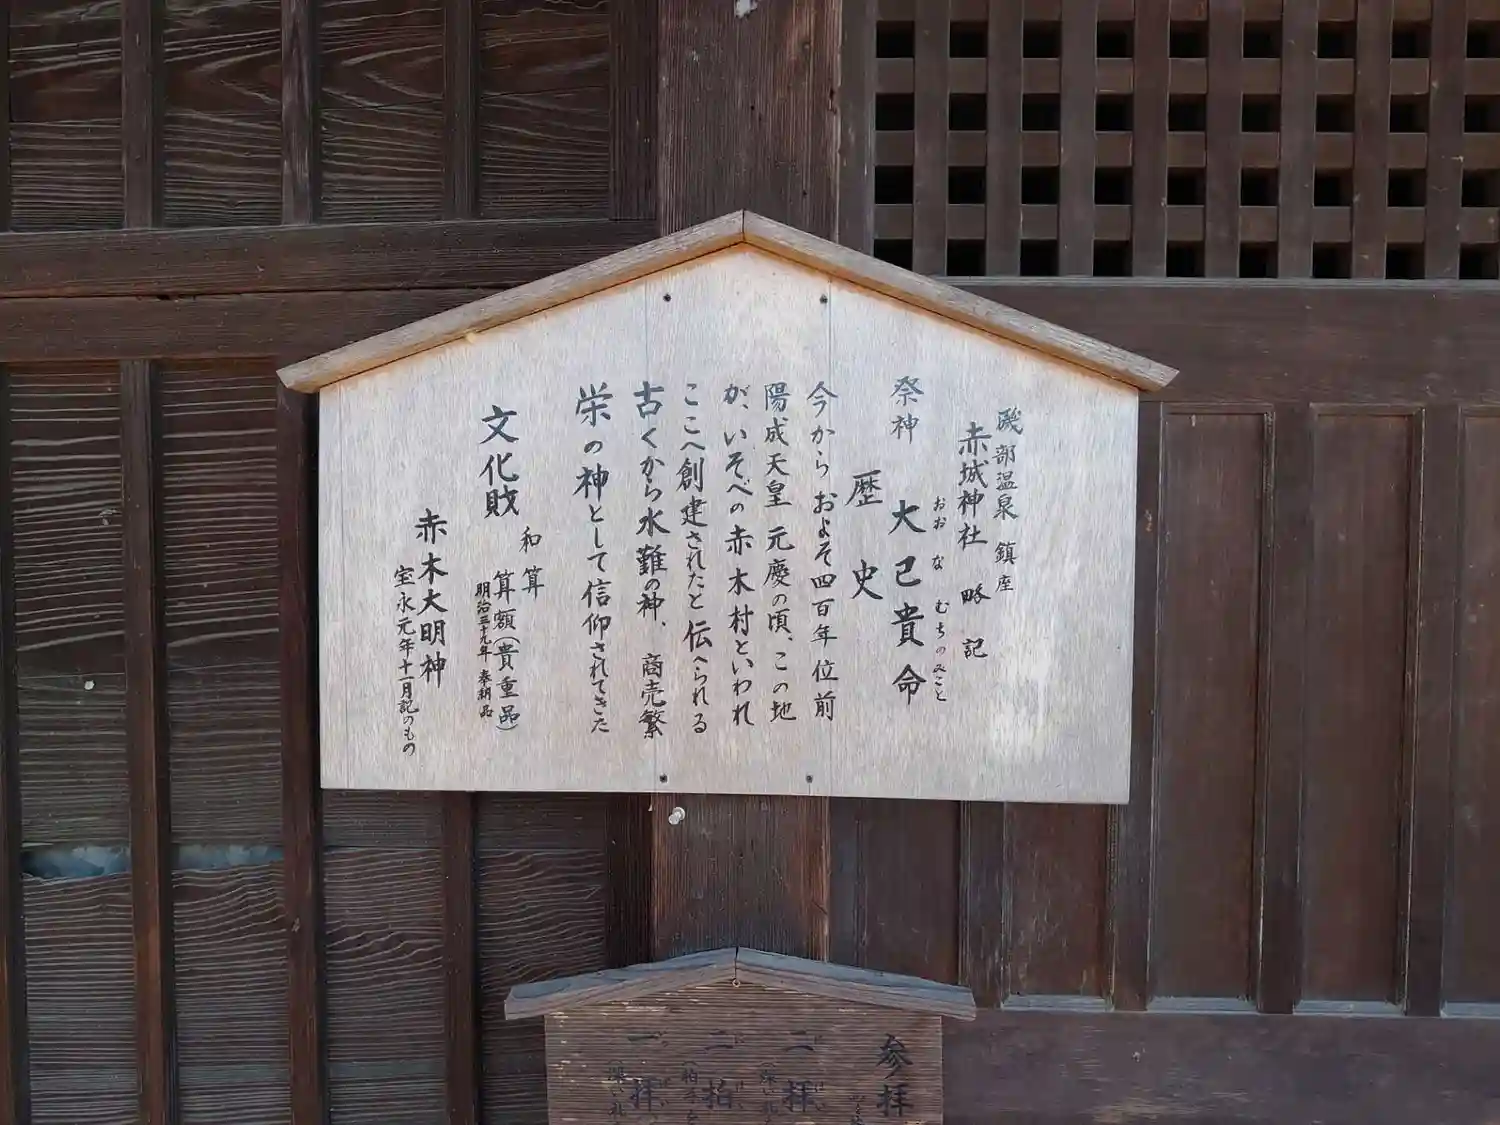 磯部温泉 鎮座
赤城神社 略記
祭神 大己貴命
おお な むちのみこと
歴史
今から およそ四百年位前
陽成天皇 元慶の頃、この地
が、いそべの赤木村といわれ
ここへ創建されたと伝へられる
古くから水難の神、商売繁
栄の神として信仰されてきた
文化財
和算
算額(貴重品)
明治三十九年 奉納品
赤木大明神
宝永元年十一月記のもの
参拝
二拝
二拍
一拝